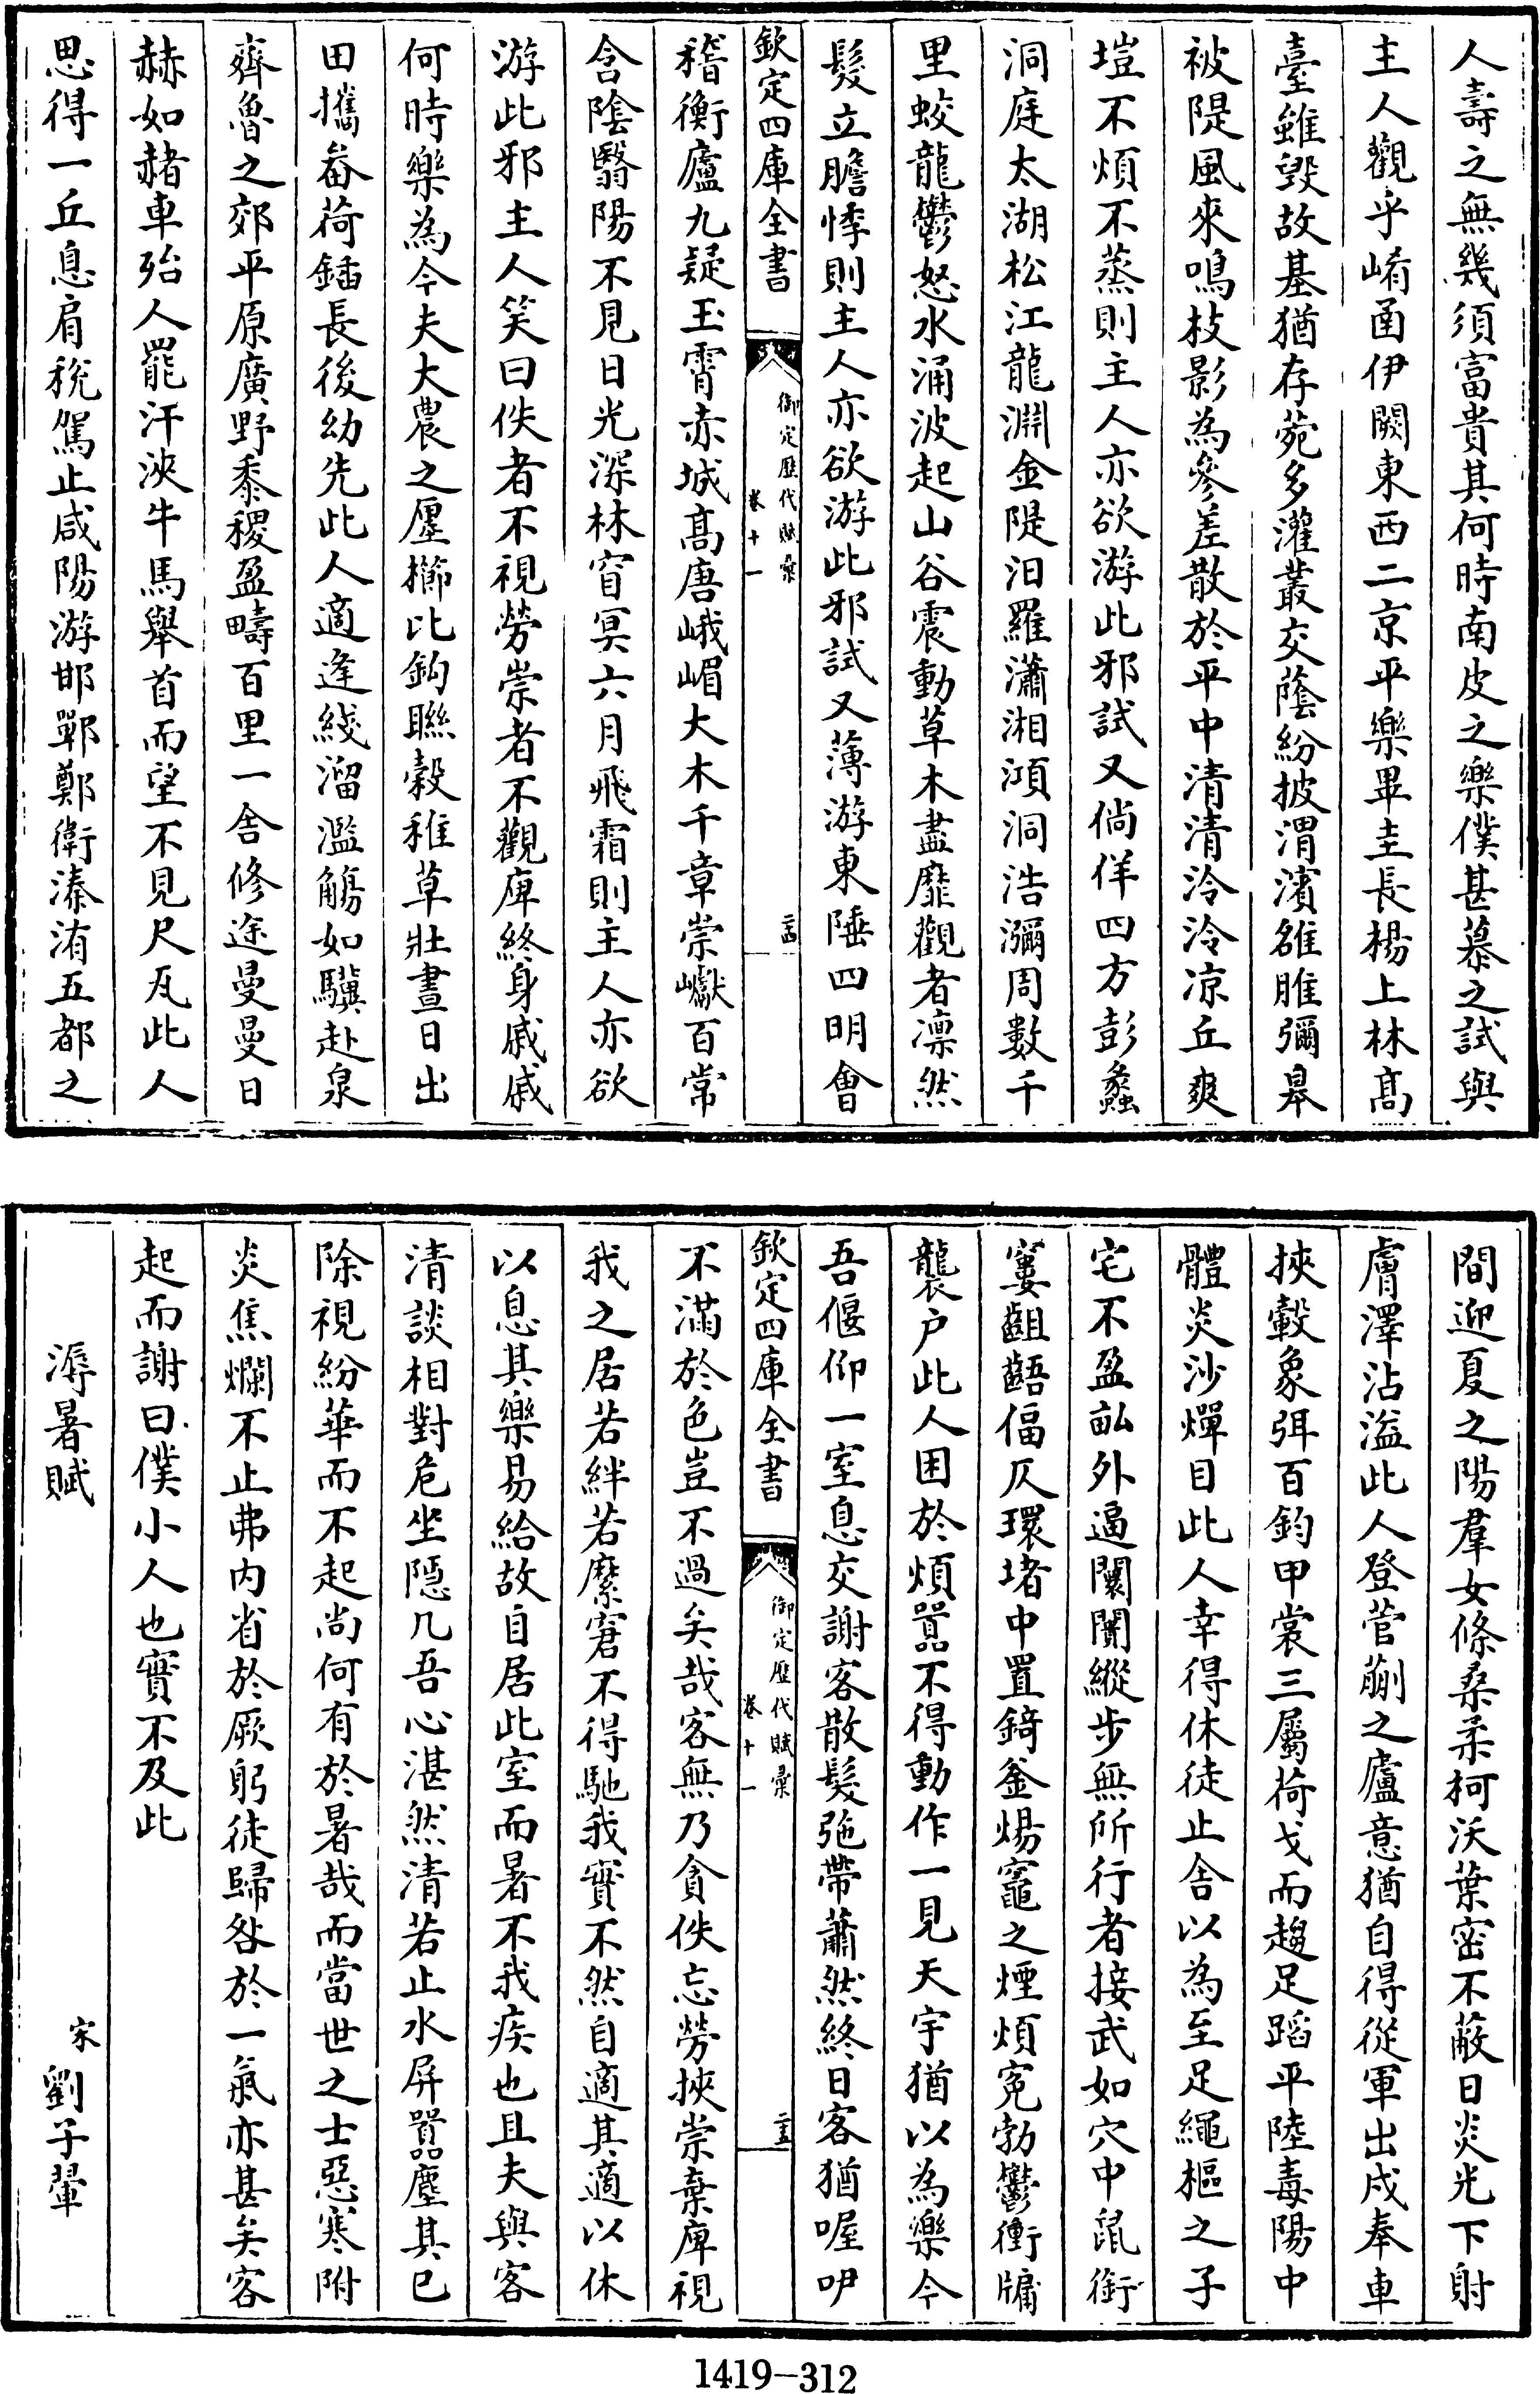 人壽之無幾須富貴其何時南皮之樂僕甚慕之試與
主人觀乎崤函伊闕東西二京平樂畢圭長楊上林髙
臺雖毀故基猶存菀多灌叢交蔭紛披渭濱雒脽彌皋
被隄風來鳴枝影為參差散於平中清清泠泠凉丘爽
塏不煩不蒸則主人亦欲游此邪試又倘佯四方彭蠡
洞庭太湖松江龍淵金隄汨羅瀟湘澒洞浩瀰周數千
里蛟龍鬱怒水涌波起山谷震動草木盡靡觀者凛然
髮立膽悸則主人亦欲游此邪試又薄游東陲四明會
欽定四庫全書
御定歷代賦彙
卷十一
二四
稽衡廬九疑玉霄赤城髙唐峨嵋大木千章崇巘百常
含陰翳陽不見日光深林窅冥六月飛霜則主人亦欲
游此邪主人笑曰佚者不視勞崇者不觀庳終身戚戚
何時樂為今夫大農之廛櫛比鈎聯穀稚草壯晝日出
田攜畚荷鍤長後幼先此人適逢綫溜濫觴如驥赴泉
齊魯之郊平原廣野黍稷盈疇百里一舍修途曼曼日
赫如赭車殆人罷汗浹牛馬舉首而望不見尺瓦此人
思得一丘息肩稅駕止咸陽游邯鄲鄭衛溱洧五都之
間迎夏之陽羣女條桑柔柯沃葉密不蔽日炎光下射
膚澤沾溢此人登菅蒯之廬意猶自得從軍出戍奉車
挾轂象弭百鈞甲裳三屬荷戈而趨足蹈平陸毒陽中
體炎沙燀目此人幸得休徒止舍以為至足繩樞之子
宅不盈畝外逼闤闠縱步無所行者接武如穴中鼠銜
窶齟齬偪仄環堵中置錡釜煬竈之煙煩寃勃鬱衝牖
襲户此人困於煩嚻不得動作一見天宇猶以為樂今
吾偃仰一室息交謝客散髮弛帶蕭然終日客猶喔咿
欽定四庫全書
御定歷代賦彙
卷十一
二五
不滿於色豈不過矣哉客無乃貪佚忘勞挾崇棄庳視
我之居若絆若縻窘不得馳我實不然自適其適以休
以息其樂易給故自居此室而暑不我疾也且夫與客
清談相對危坐隱几吾心湛然清若止水屏嚻塵其已
除視紛華而不起尚何有於暑哉而當世之士惡寒附
炎焦爛不止弗内省於厥躬徒歸咎於一氣亦甚矣客
起而謝曰僕小人也實不及此
溽暑賦
宋
劉子翬
1419-312